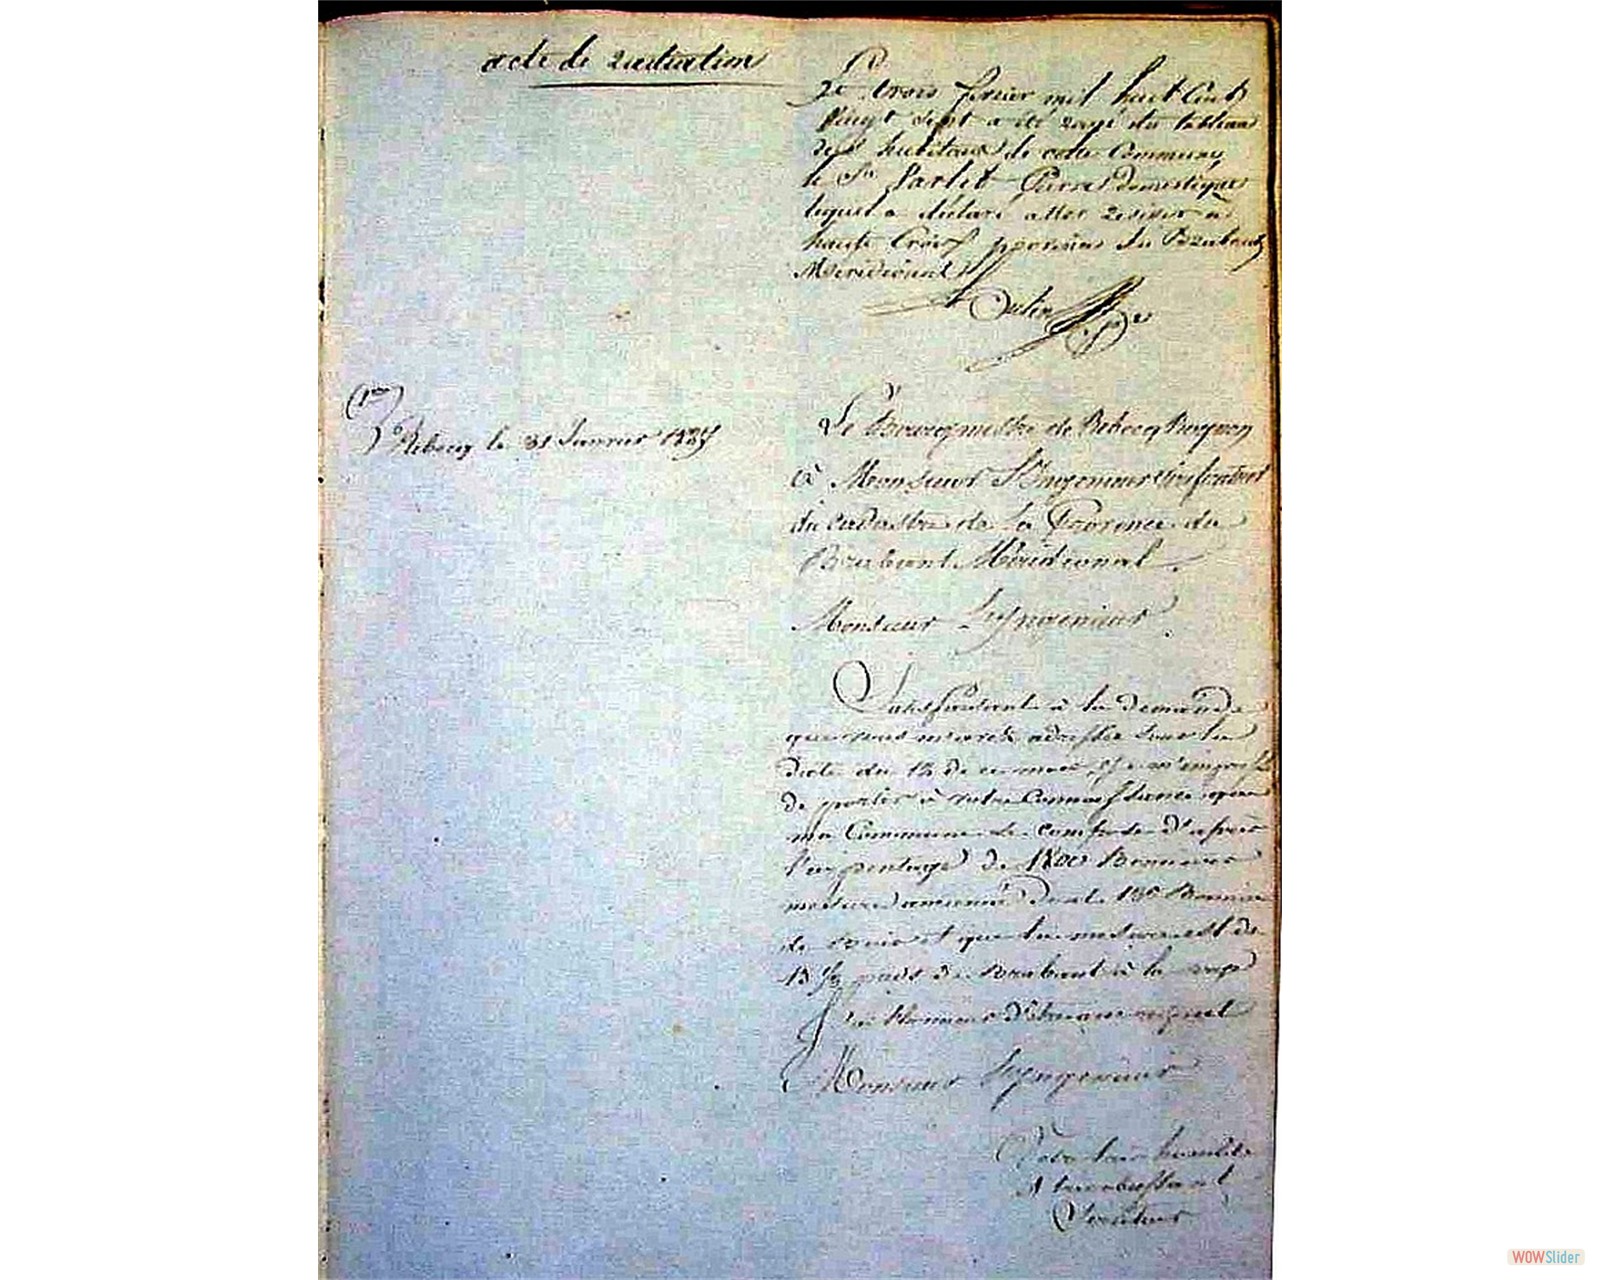 acte de radiation
Le trois fevrier mil huit Cent
Vingt Sept a été rayé du tableau
des habitans de cette Commune
le Sr Parlet Pierre domestique
lequel a déclaré aller resider à
haute Croix province du Brabant
Méridional
Rebecq le 31 Janvier 1827
Le Bourgmestre de Rebecq Rognon
à Monsieur l'Ingenieur Verificateur
du cadastre de la Province du
Brabant Méridional.
Monsieur l'Ingenieur
Satisfaisant à la demande
que vous m'avez adressée sous la
date du 12 de ce mois, je m'empresse
de porter à votre Connaissance que
ma Commune se compose d'après
l'arpentage de 1800 Bonniers
mesure ancienne dont 150 Bonniers
de Bois et que la mesure est de
pieds de Brabant à la verge
J'ai l'honneur d'être avec respect
Monsieur l'Ingenieur
Votre très humble
et très obéissant
Serviteur
WOWSlider